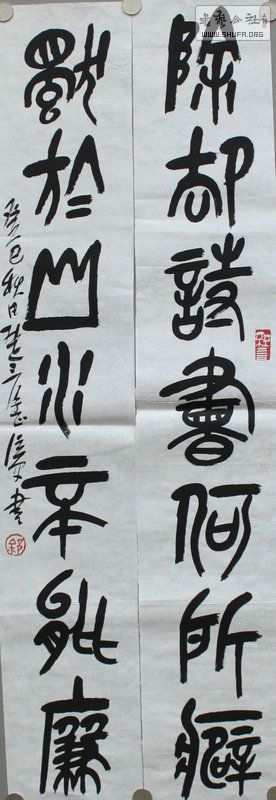 書藝公社
WWW.SHUFA.ORG
除却詩書何所癖
獨於山水不能廉
癸巳秋日 書